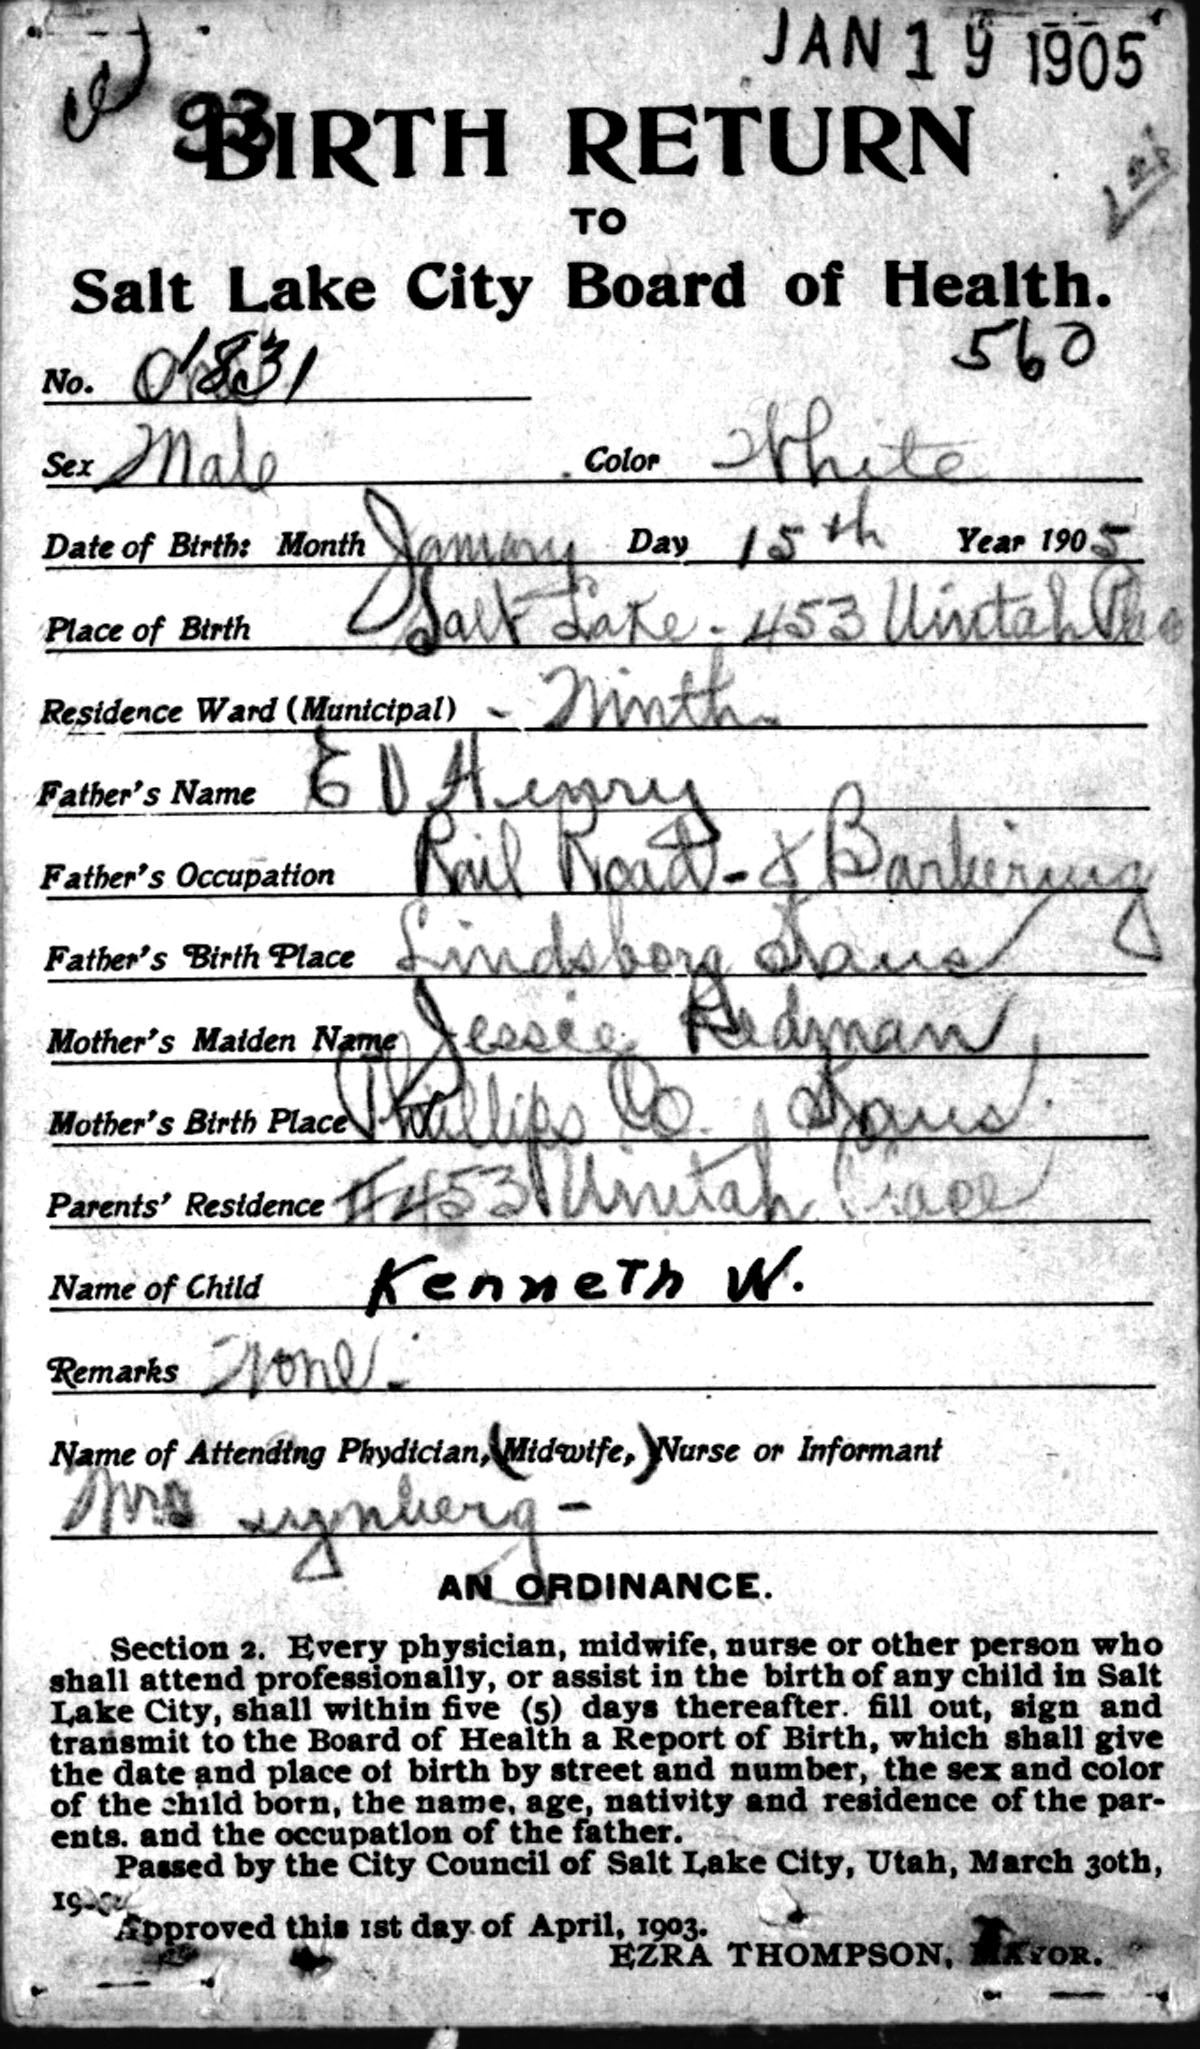 JAN 19 1905
93
BIRTH RETURN
TO
Salt Lake City Board of Health.
560
No. 1831
Sex Male Color White
Date of Birth: Month January Day 15th Year 1905
Place of Birth Salt Lake - 453 Uintah
Residence Ward (Municipal) - Ninth
Father's Name E D Henry
Father's Occupation Rail Road - & Barbering
Father's Birth Place Lindsborg Kans
Mother's Maiden Name Jessie Redman
Mother's Birth Place Phillips Co. Kans
Parents' Residence #453 Uintah Place
Name of Child Kenneth W.
Remarks None -
Name of Attending Phydician, (Midwife,) Nurse or Informant
Mrs -
AN ORDINANCE.
Section 2. Every physician, midwife, nurse or other person who
shall attend professionally, or assist in the birth of any child in Salt
Lake City, shall within five (5) days thereafter. fill out, sign and
transmit to the Board of Health a Report of Birth, which shall give
the date and place of birth by street and number, the sex and color
of the child born, the name, age, nativity and residence of the par-
ents. and the occupation of the father.
Passed by the City Council of Salt Lake City, Utah, March 30th,
Approved this 1st day of April, 1903.
EZRA THOMPSON, MAYOR.